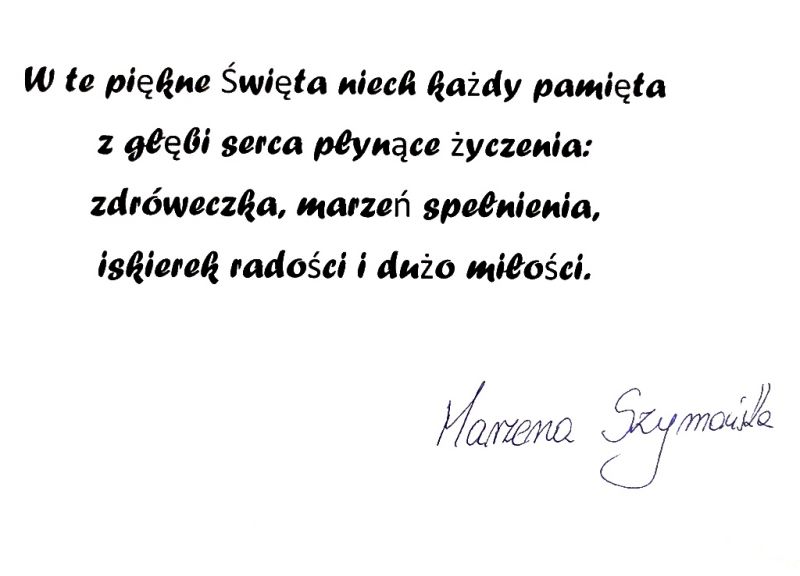 W te piękne Święta niech każdy pamięta
z głębi serca płynące życzenia:
zdróweczka, marzeń spełnienia,
iskierek radości i dużo miłości.
Marzena Szymańska